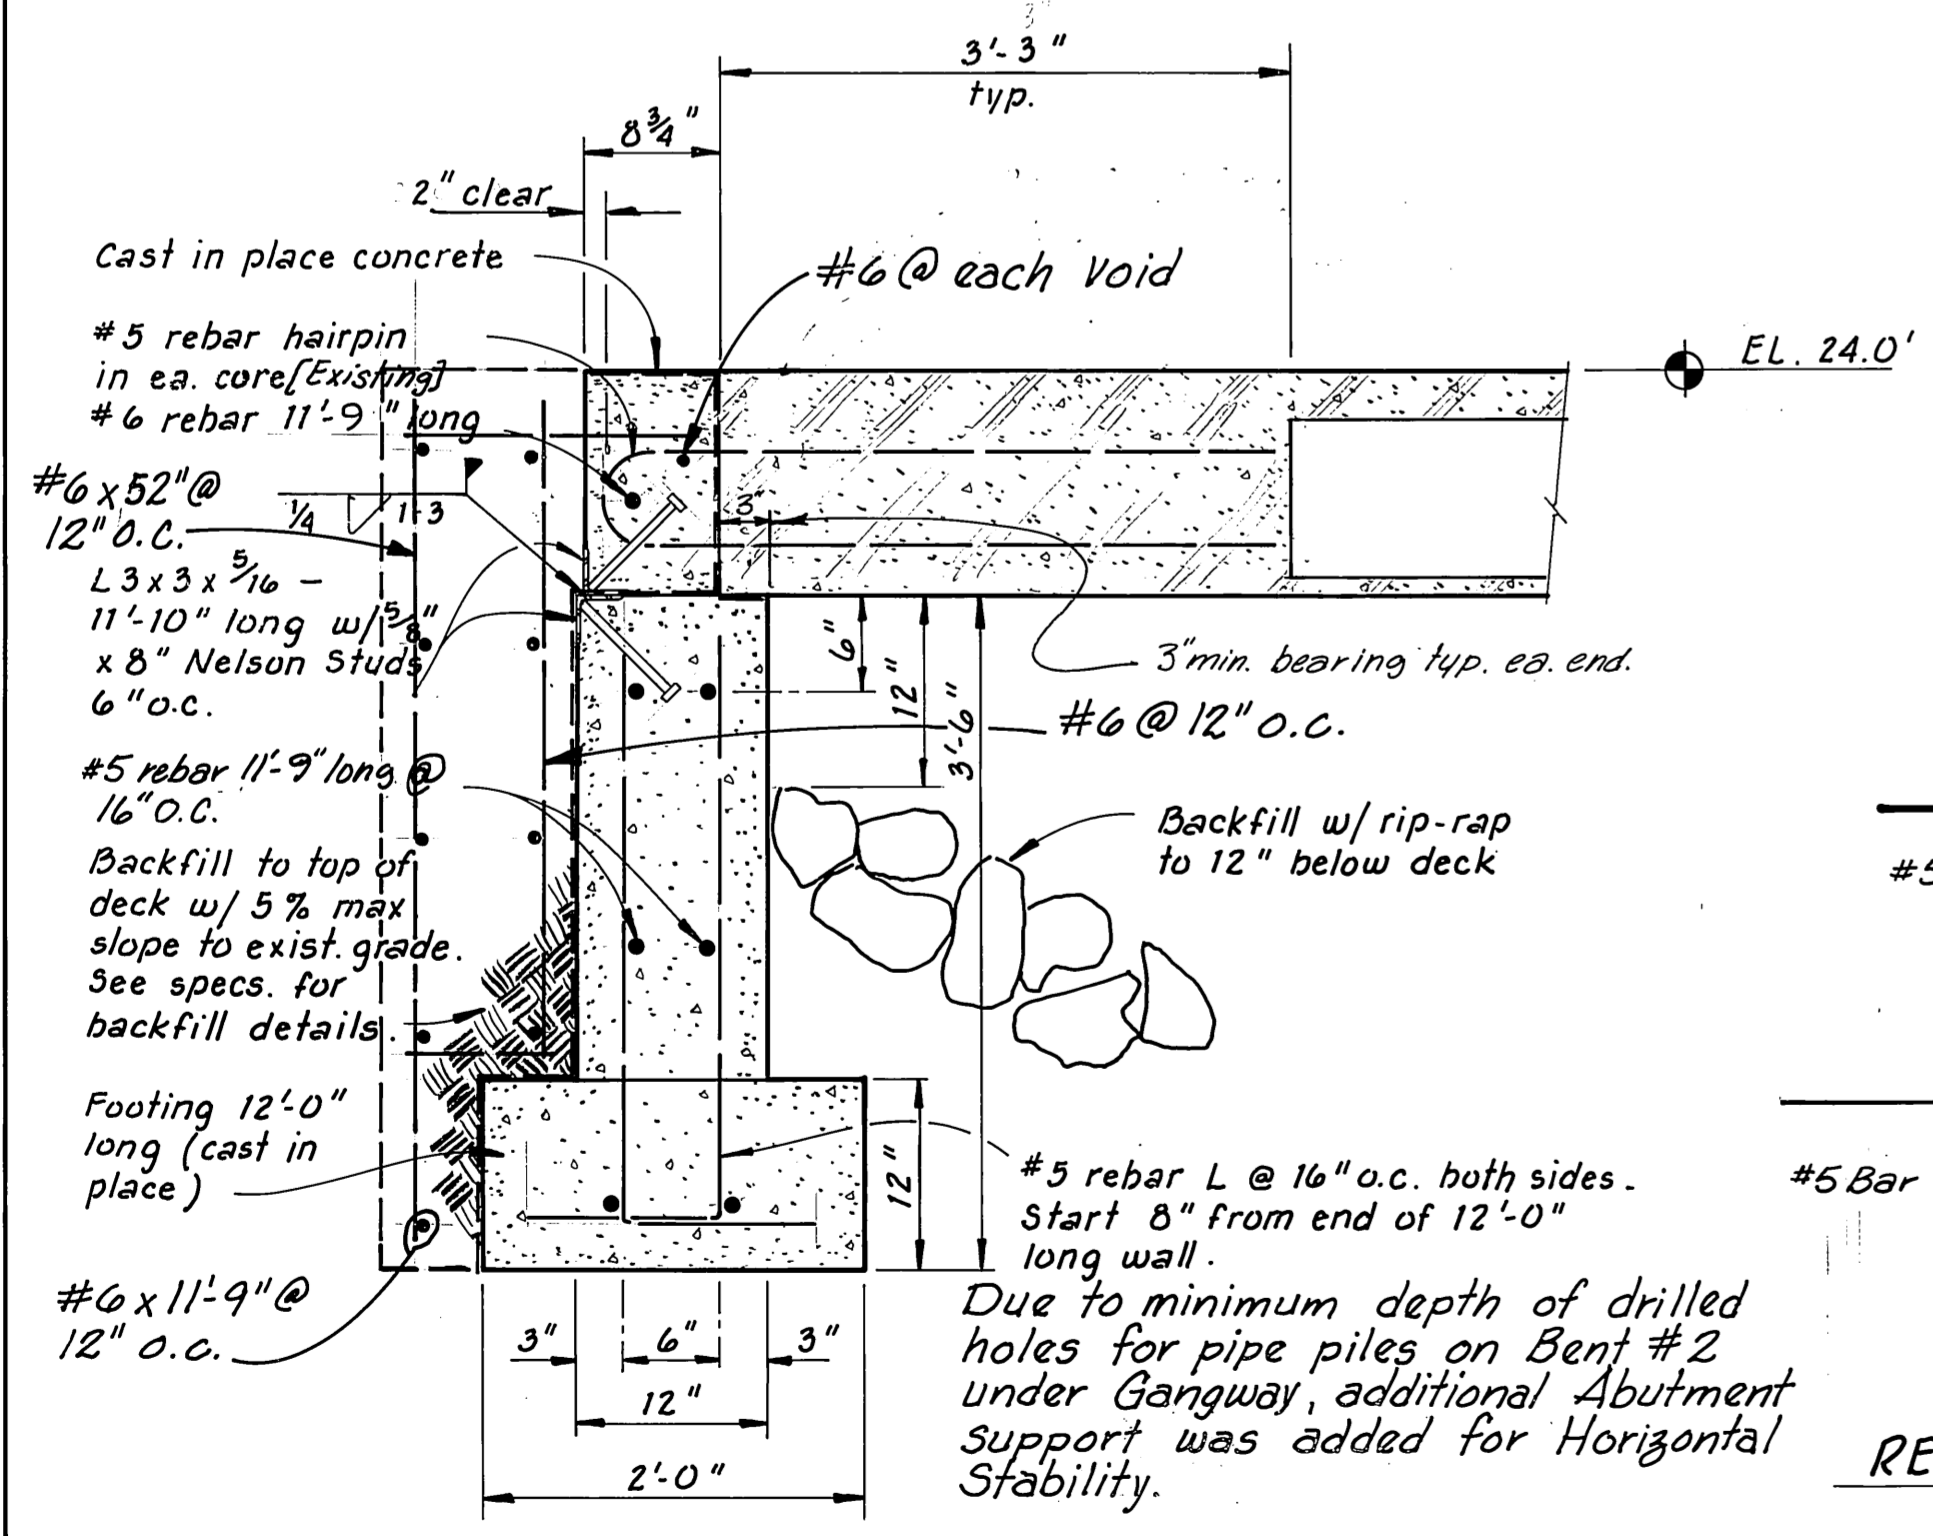 3'-3"
typ.
8 3/4"
2" clear
Cast in place concrete
#6 @ each void
#5 rebar hairpin
in ea. core [Existing]
#6 rebar 11'-9" long
EL. 24.0'
#6 x 52" @
12" O.C.
1/4
1-3
3"
L 3 x 3 x 5/16 -
11'-10" long w/ 5/8"
x 8" Nelson Studs
6" o.c.
6"
12"
3'-6"
3" min. bearing typ. ea. end.
#6 @ 12" o.c.
#5 rebar 11'-9" long @
16" O.C.
Backfill w/ rip-rap
to 12" below deck
Backfill to top of
deck w/ 5% max
slope to exist. grade.
See specs. for
backfill details.
#5
Footing 12'-0"
long (cast in
place)
12"
#5 rebar L @ 16" o.c. both sides.
Start 8" from end of 12'-0"
long wall.
#5 Bar
#6 x 11'-9" @
12" O.C.
3"
6"
3"
12"
2'-0"
Due to minimum depth of drilled
holes for pipe piles on Bent #2
under Gangway, additional Abutment
support was added for Horizontal
Stability.
RE